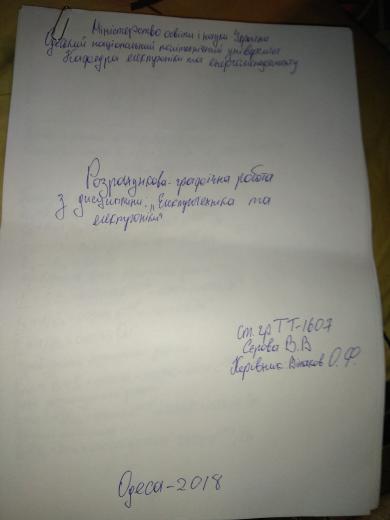 Міністерство освіти і науки України
Одеський національний політехнічний університет
Кафедра електроніки та енергоменеджменту
Розрахункова-графічна робота
з дисципліни: „Електротехніка та
електроніка"
Ст. гр ТТ-1607
Сєрова В.В
Керівник О.Ф.
Одеса-2018